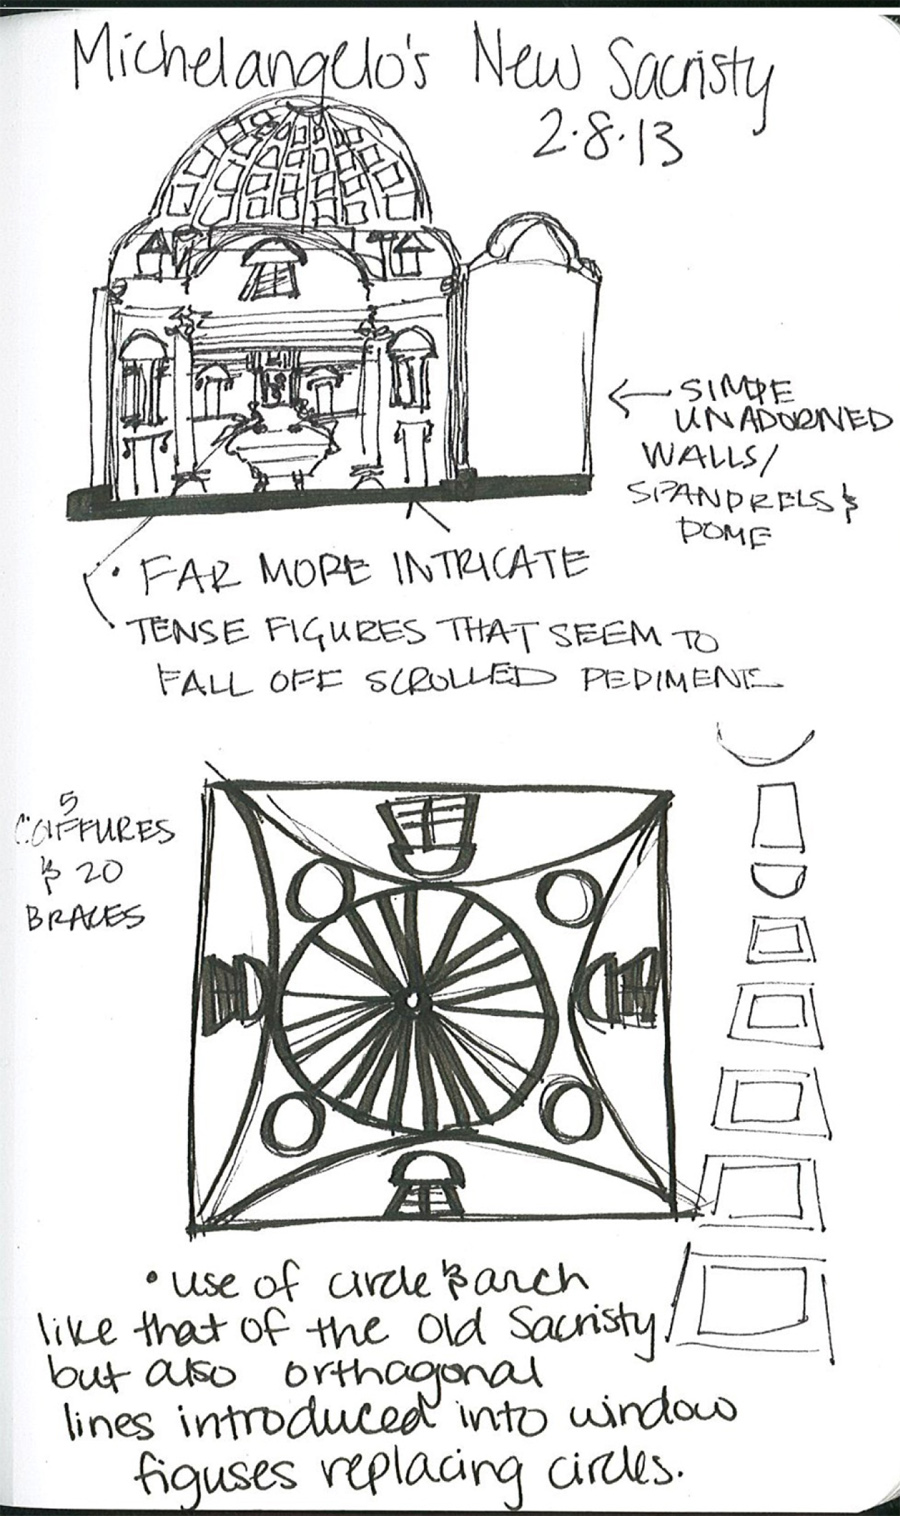 Michelangelo's New Sacristy
2.8.13
← SIMPE
UNADORNED
WALLS/
SPANDRELS &
DOME
• FAR MORE INTRICATE
TENSE FIGURES THAT SEEM TO
FALL OFF SCROLLED PEDIMENT
5
COIFFURES
& 20
BRACES
• use of circle & arch
like that of the Old Sacristy
but also orthagonal
lines introduced into window
figuses replacing circles.